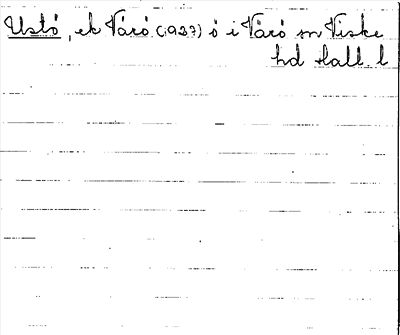 Ustö, ek Värö (1927) ö i Värö sn Viske
hd Hall. l